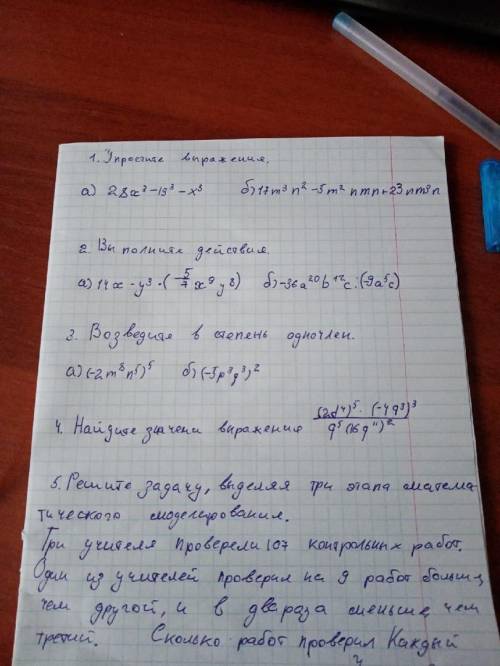 1. Упростите выражения.
а) 28x³-13³-x³ б) 17m³n²-5m²nmn+23nm³n
2. Выполните действия.
а) 14x·y³·(-5/7x⁹y⁸) б) -36a²⁰b¹²c:(-9a⁵c)
3. Возведите в степень одночлен.
а) (-2m⁸n⁵)⁵ б) (-5p³q³)²
4. Найдите значени выражения (2d⁴)⁵·(-4q³)³/q⁵(16q¹¹)²
5. Решите задачу, выделяя три этапа матема
тического моделирования.
Три учителя проверели 107 контрольных работ.
Один из учителей проверил на 9 работ больше,
чем другой, и в два раза меньше, чем
третий. Сколько работ проверил каждый